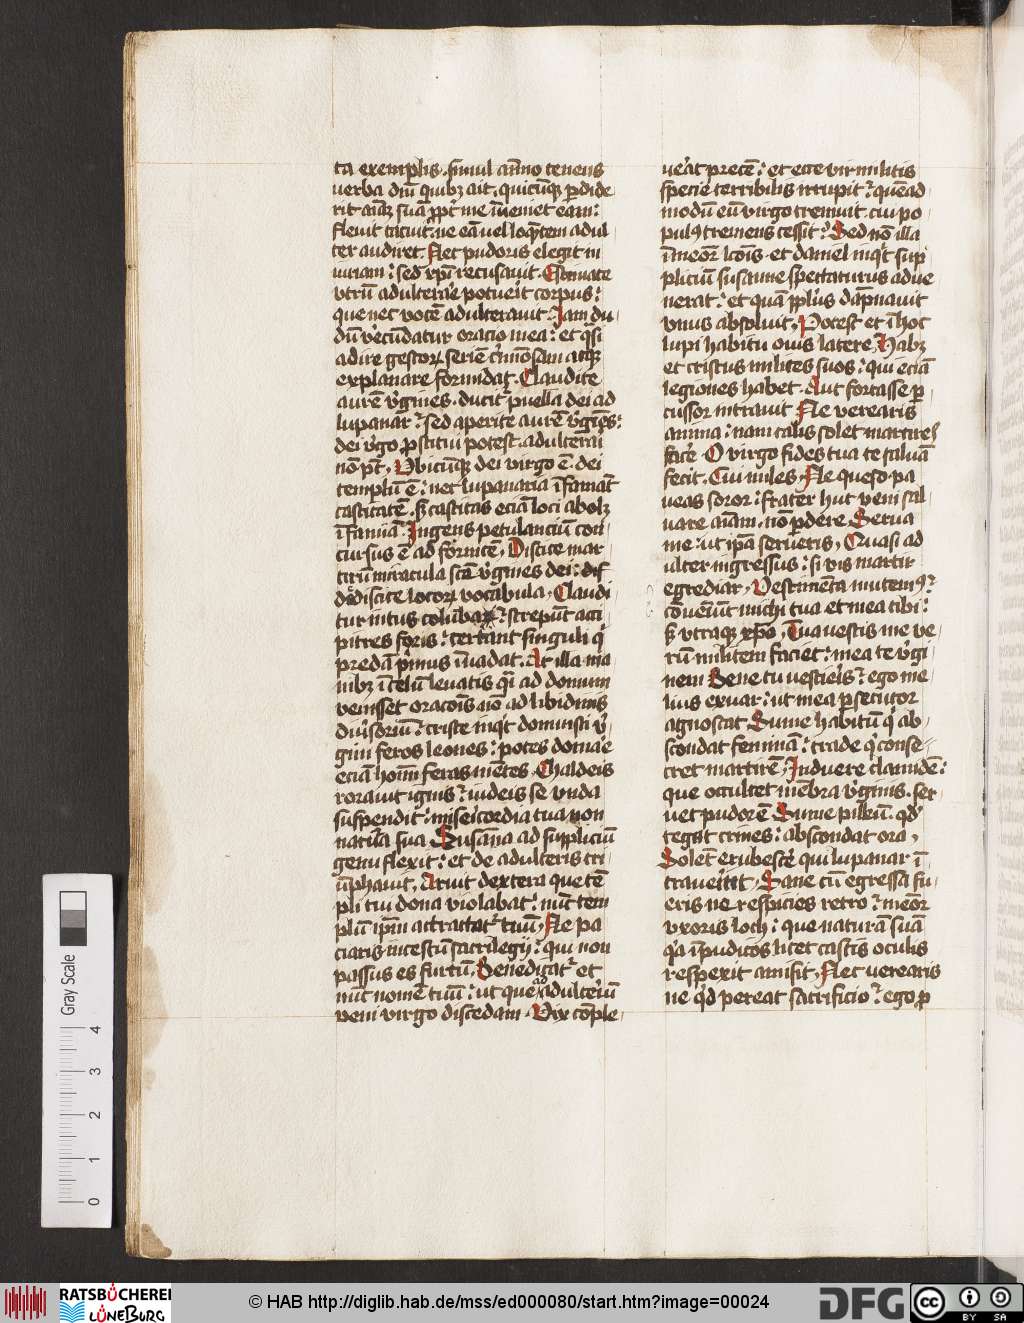 ta exemplis. simul animo tenens
verba diu quibz ait. quicūqz ꝑdide
rit aīaz suā ꝓpt me īueniet eam:
fleuit tacuit: ne eā vel loqntem adul
ter audiret Nec pudoris elegit in
iuriam: sed xpi recusauit. Estimate
vtrū adulterare potuerit corpus:
que nec vocē adulterauit. Jam du
dū verecūdatur oracio mea: et qsi
adire gestorꝝ seriē criminosam atqz
explanare formidat. Claudite
aurē virgines. ducit puella dei ad
lupanar: sed aperite aurē virgines:
dei virgo ꝓstitui potest. adulterari
nō pt, Vbicūqz dei virgo ē. dei
templū ē: nec lupanaria īfamāt
castitatē. sꝫ castitas eciā loci abolz
īfamiā. Jngens petulanciū con
cursus ē ad fornicē, Discite mar
tirū miracula scē virgines dei: dis
discite locorꝝ vocabula, Claudi
tur intus columba: strepunt acci
pitres foris: certant singuli qi
predā primus īuadat. At illa ma
nibz ī celū leuatis qsi ad domum
venisset oracōis nō ad libidinis
diuersoriū: criste inqt domuisti vir
gini feros leones: potes domare
eciā hominū feras mentes, Chaldeis
rorauit ignis: iudeis se vnda
suspendit: misericordia tua non
natura sua Susāna ad suppliciū
genu flexit: et de adulteris tri
ūphauit, Aruit dextera que tē
pli tui dona violabat: nūc tem
plū ipm attractat tuū, Ne pa
ciaris incestū sacrilegij: qui non
passus es furtū, Benedicat et
nūc nomē tuū: ut que ad adulteriū
veni virgo discedam. Vix cōple
uerat precē: et ecce vir militis
specie terribilis irrupit: quēad
modū eū virgo tremuit. cui po
pulꝰ tremens cessit: Sed nō illa
īmemor lcōnis. et daniel inqt sup
pliciū susanne spectaturus adue
nerat: et quā pplus dāpnauit
vnus absoluit, Potest et ī hoc
lupi habitu ouis latere, Habz
et cristus milites suos: qui eciā
legiones habet. Aut fortasse ꝑ
cussor intrauit Ne verearis
anima: nam talis solet martires
facere O virgo fides tua te saluā
fecit. Cui miles, Ne queso pa
ueas soror: frater huc veni sal
uare aīam. nō ꝑdere Serua
me: ut ipa serueris, Quasi ad
ulter ingressus: si vis martir
egrediar, Vestimēta mutemꝰ:
cōueniūt michi tua et mea tibi:
sꝫ vtraqz xpō, Tua vestis me ve
rū militem faciet: mea te virgi
nem Bene tu vestieris: ego me
lius exuar: ut mea ꝑsecutor
agnoscat Sume habitū qi ab
scondat feminā: trade qi conse
cret martirē, Jnduere clamidē:
que occultet mēbra virginis. ser
uet pudorē Sume pilleū. qd
tegat crines: abscondat ora,
Solet erubescere qui lupanar ī
trauerit, Sane cū egressa fu
eris ne respicies retro: memor
vxoris loth: que naturā suā
qa īpudicos licet castis oculis
respexit amisit, Nec verearis
ne qd pereat sacrificio: ego ꝓ
Gray Scale
4
3
2
1
0
RATSBÜCHEREI
LÜNEBURG
© HAB http://diglib.hab.de/mss/ed000080/start.htm?image=00024
DFG
cc
BY SA